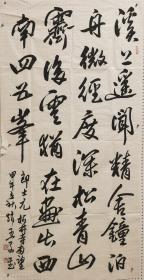 溪上遥聞精舍鐘泊
舟微徑度深松青山
霽後雲猶在畫出西
南四五峯
郎士元柏林寺南望
甲午